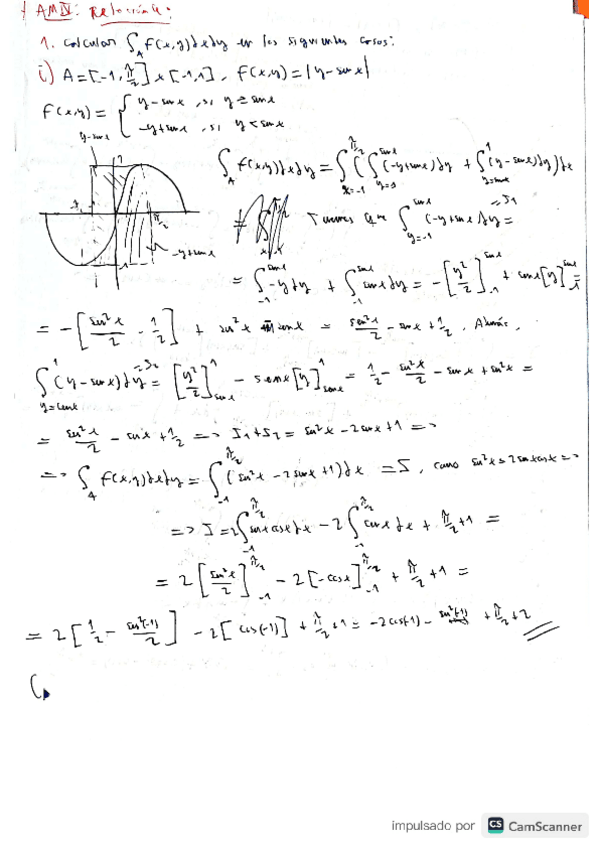 AMIV: Relación 1:
1. Calcular ∫_A f(x,y)dxdy en los siguientes casos:
i) A = [-1, π/2] × [-1,1], f(x,y) = |y - sen x|
f(x,y) = { y - sen x, si y ≥ sen x
-y + sen x, si y < sen x
y - sen x
-y + sen x
∫_A f(x,y)dxdy = ∫_{x=-1}^{π/2} (∫_{y=-1}^{sen x} (-y + sen x)dy + ∫_{y=sen x}^{1} (y - sen x)dy) dx
Tenemos que ∫_{y=-1}^{sen x} (-y + sen x)dy =
= ∫_{-1}^{sen x} -y dy + ∫_{-1}^{sen x} sen x dy = -[y²/2]_{-1}^{sen x} + sen x [y]_{-1}^{sen x} =
= -[sen²x/2 - 1/2] + sen²x sen x = sen²x/2 - sen x + 1/2. Además,
∫_{y=sen x}^{1} (y - sen x)dy = [y²/2]_{sen x}^{1} - sen x [y]_{sen x}^{1} = 1/2 - sen²x/2 - sen x + sen²x =
= sen²x/2 - sen x + 1/2 => I1 + I2 = sen²x - 2sen x + 1 =>
=> ∫_A f(x,y)dxdy = ∫_{-1}^{π/2} (sen²x - 2sen x + 1)dx = I, como sen²x = 2sen x cos x =>
=> I = 2∫_{-1}^{π/2} sen x cos x dx - 2∫_{-1}^{π/2} sen x dx + π/2 + 1 =
= 2[sen²x/2]_{-1}^{π/2} - 2[-cos x]_{-1}^{π/2} + π/2 + 1 =
= 2[1/2 - sen²(-1)/2] - 2[cos(-1)] + π/2 + 1 = -2cos(-1) - sen²(-1) + π/2 + 2
impulsado por CS CamScanner